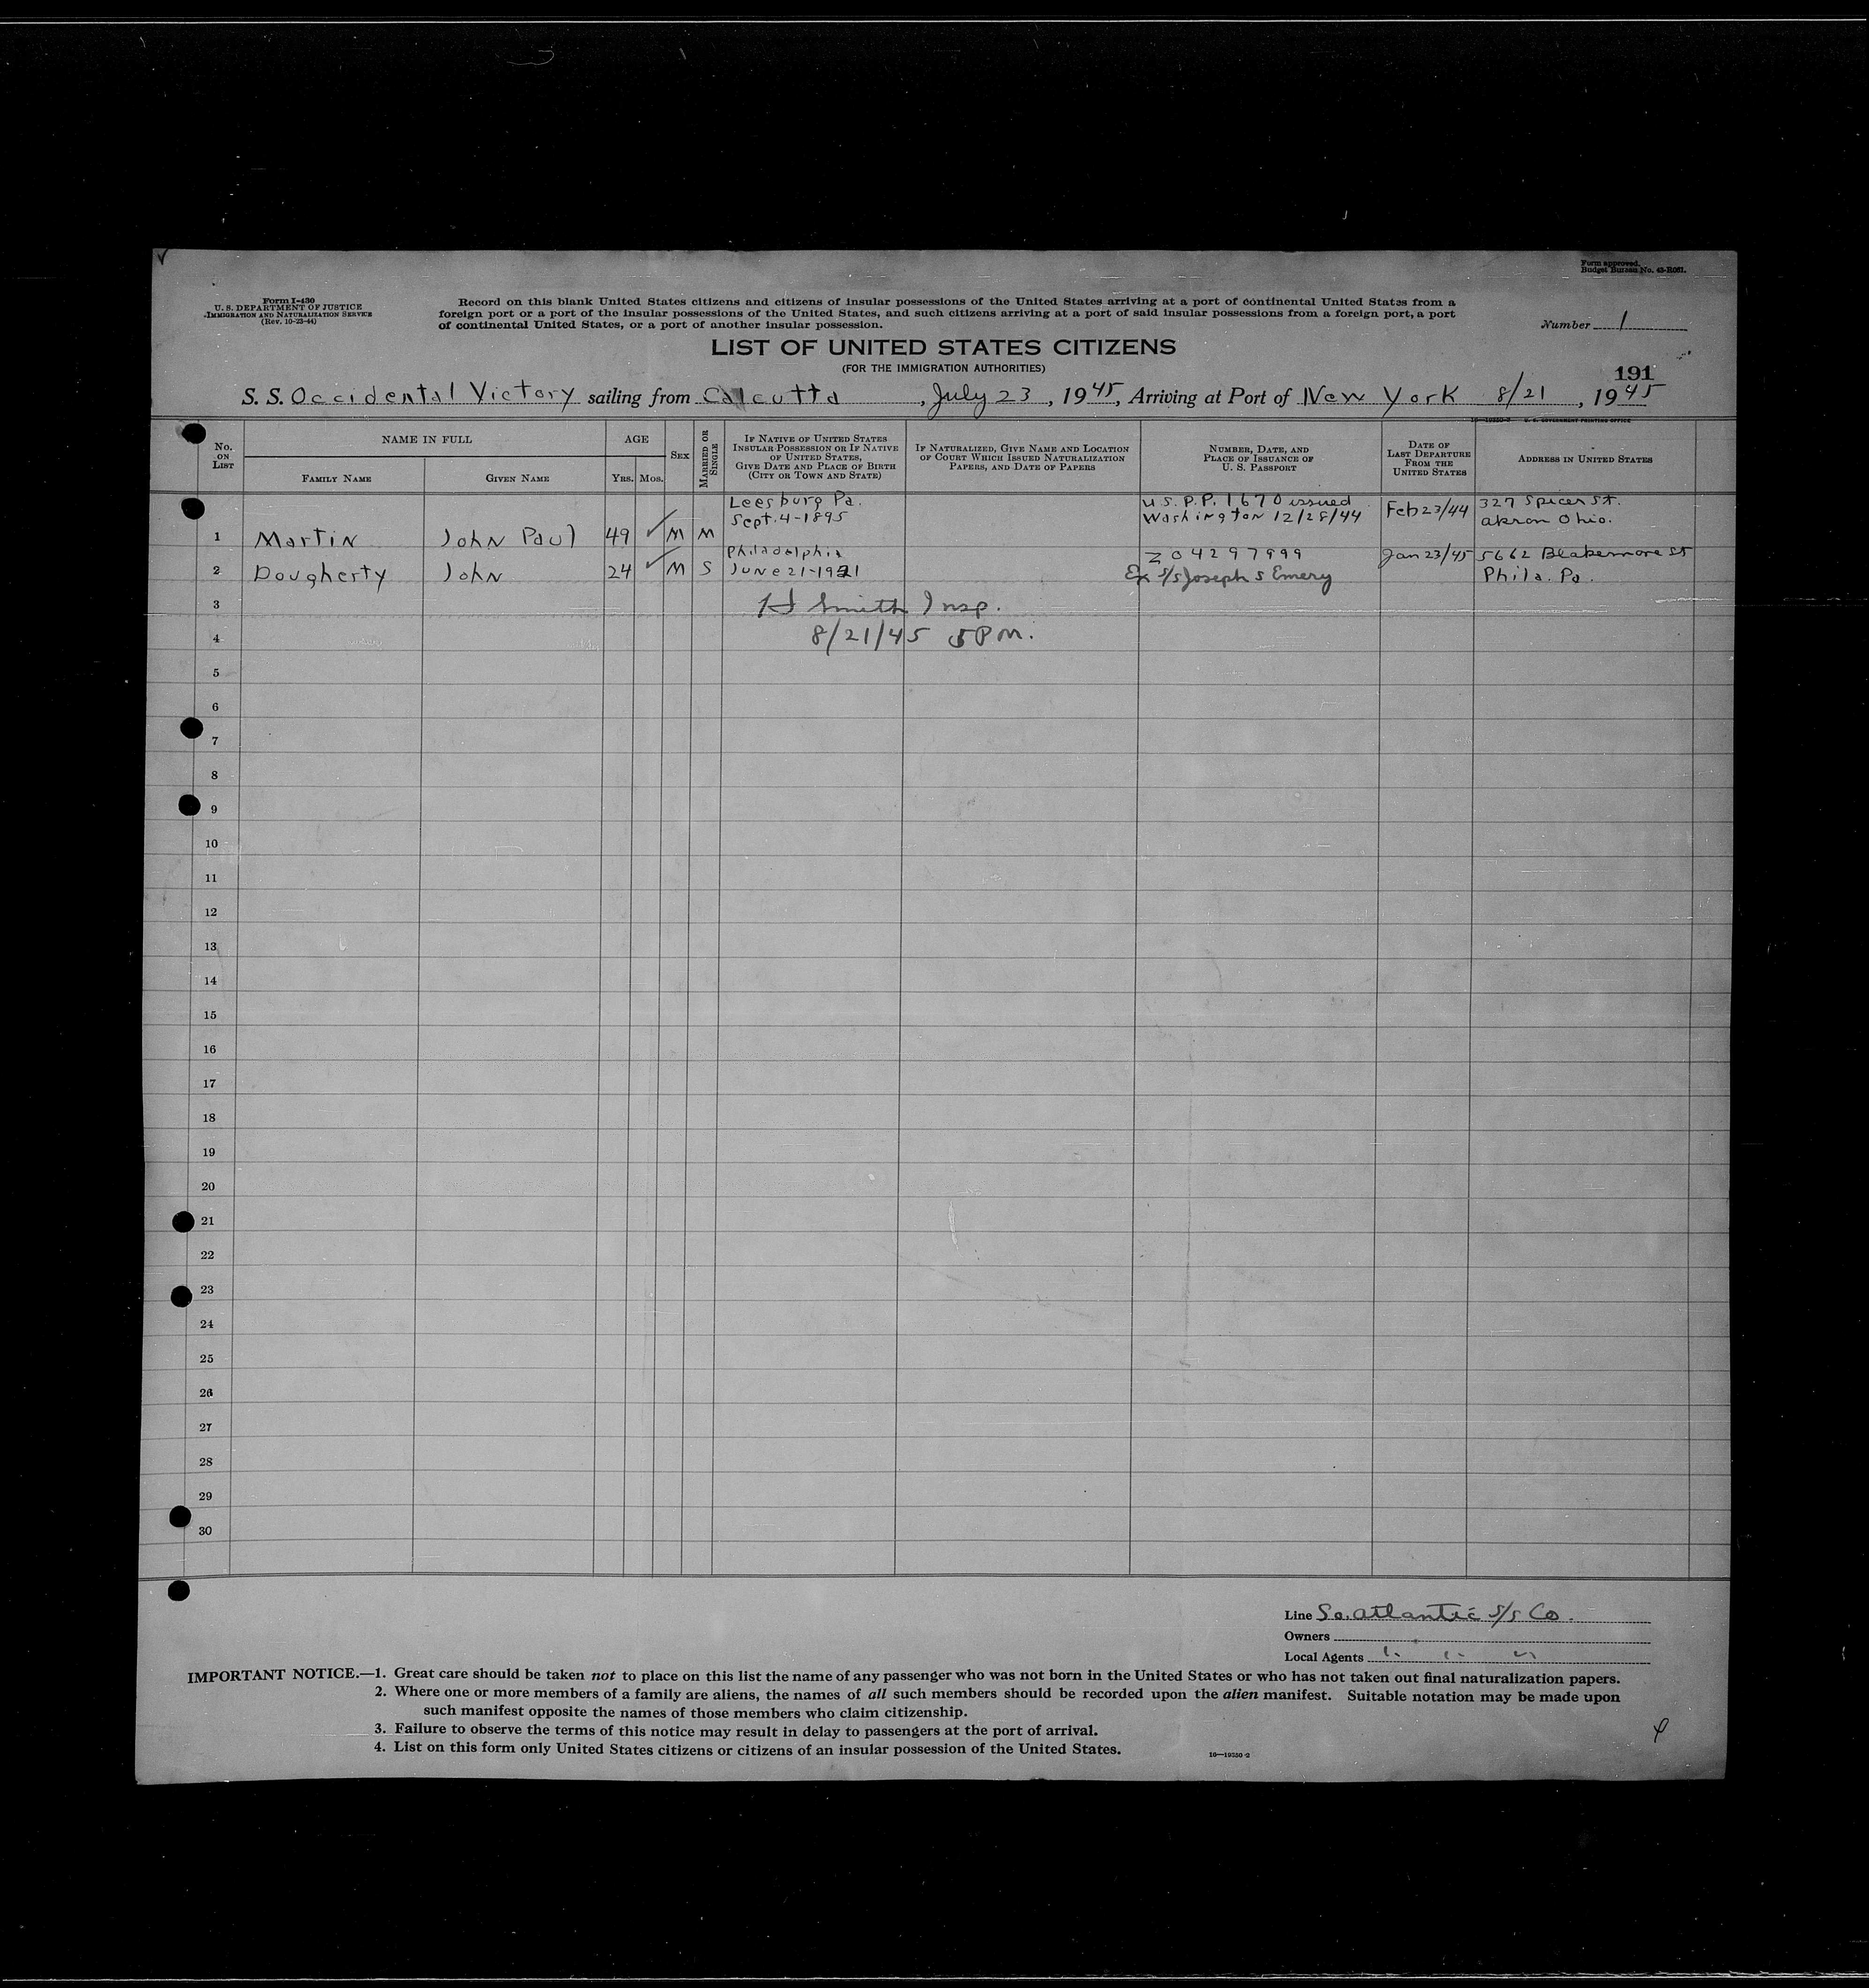 Form approved.
Budget Bureau No. 43-R061.
Form I-430
U. S. DEPARTMENT OF JUSTICE
IMMIGRATION AND NATURALIZATION SERVICE
(Rev. 10-23-44)
Record on this blank United States citizens and citizens of insular possessions of the United States arriving at a port of continental United States from a
foreign port or a port of the insular possessions of the United States, and such citizens arriving at a port of said insular possessions from a foreign port, a port
of continental United States, or a port of another insular possession.
Number 1
LIST OF UNITED STATES CITIZENS
(FOR THE IMMIGRATION AUTHORITIES)
191
S. S. Occidental Victory sailing from Calcutta, July 23, 1945, Arriving at Port of New York 8/21, 1945
U. S. GOVERNMENT PRINTING OFFICE
No. ON LIST
NAME IN FULL
FAMILY NAME
GIVEN NAME
AGE
YRS. MOS.
SEX
MARRIED OR SINGLE
IF NATIVE OF UNITED STATES
INSULAR POSSESSION OR IF NATIVE
OF UNITED STATES,
GIVE DATE AND PLACE OF BIRTH
(CITY OR TOWN AND STATE)
IF NATURALIZED, GIVE NAME AND LOCATION
OF COURT WHICH ISSUED NATURALIZATION
PAPERS, AND DATE OF PAPERS
NUMBER, DATE, AND
PLACE OF ISSUANCE OF
U. S. PASSPORT
DATE OF
LAST DEPARTURE
FROM THE
UNITED STATES
ADDRESS IN UNITED STATES
Leesburg Pa. U.S. P.P. 1670 issued Feb 23/44 327 Spicer St.
Sept. 4-1895 Washington 12/28/44 Akron Ohio.
1 Martin John Paul 49 ✓ M M
Philadelphia Z 04297999 Jan 23/45 5662 Blakemore St
2 Dougherty John 24 ✓ M S June 21-1921 Ex S/S Joseph S Emery Phila. Pa.
3 Smith Insp.
4 8/21/45 5 PM.
5
6
7
8
9
10
11
12
13
14
15
16
17
18
19
20
21
22
23
24
25
26
27
28
29
30
Line So. Atlantic S/S Co.
Owners
Local Agents " " "
IMPORTANT NOTICE.—1. Great care should be taken not to place on this list the name of any passenger who was not born in the United States or who has not taken out final naturalization papers.
2. Where one or more members of a family are aliens, the names of all such members should be recorded upon the alien manifest. Suitable notation may be made upon
such manifest opposite the names of those members who claim citizenship.
3. Failure to observe the terms of this notice may result in delay to passengers at the port of arrival.
4. List on this form only United States citizens or citizens of an insular possession of the United States.
16—19350-2